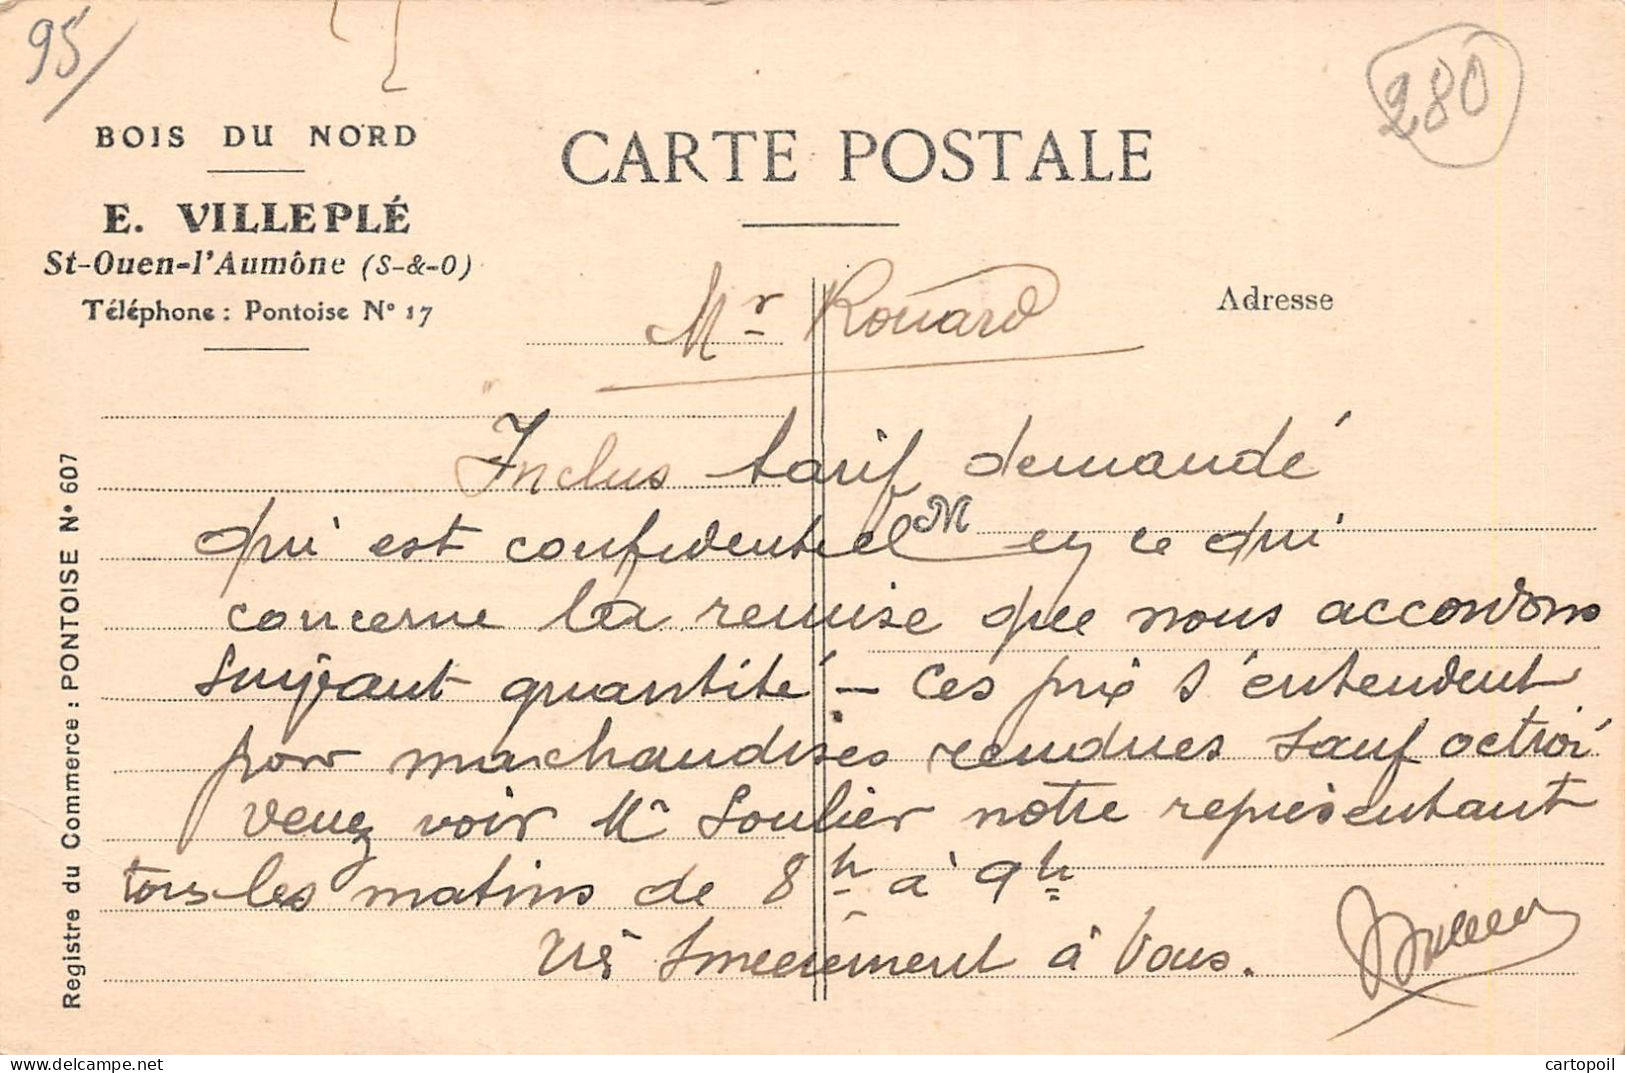 95/
280
BOIS DU NORD
E. VILLEPLÉ
St-Ouen-l'Aumône (S-&-O)
Téléphone : Pontoise N° 17
CARTE POSTALE
Adresse
Registre du Commerce : PONTOISE N° 607
Mr Rouard
Inclus tarif demandé
qui est confidentiel M en ce qui
concerne la remise que nous accordons
suivant quantité - Ces prix s'entendent
pour marchandises rendues sauf octroi
Venez voir Mr Soulier notre représentant
tous les matins de 8h à 9h
Très sincèrement à Vous.
cartopoil